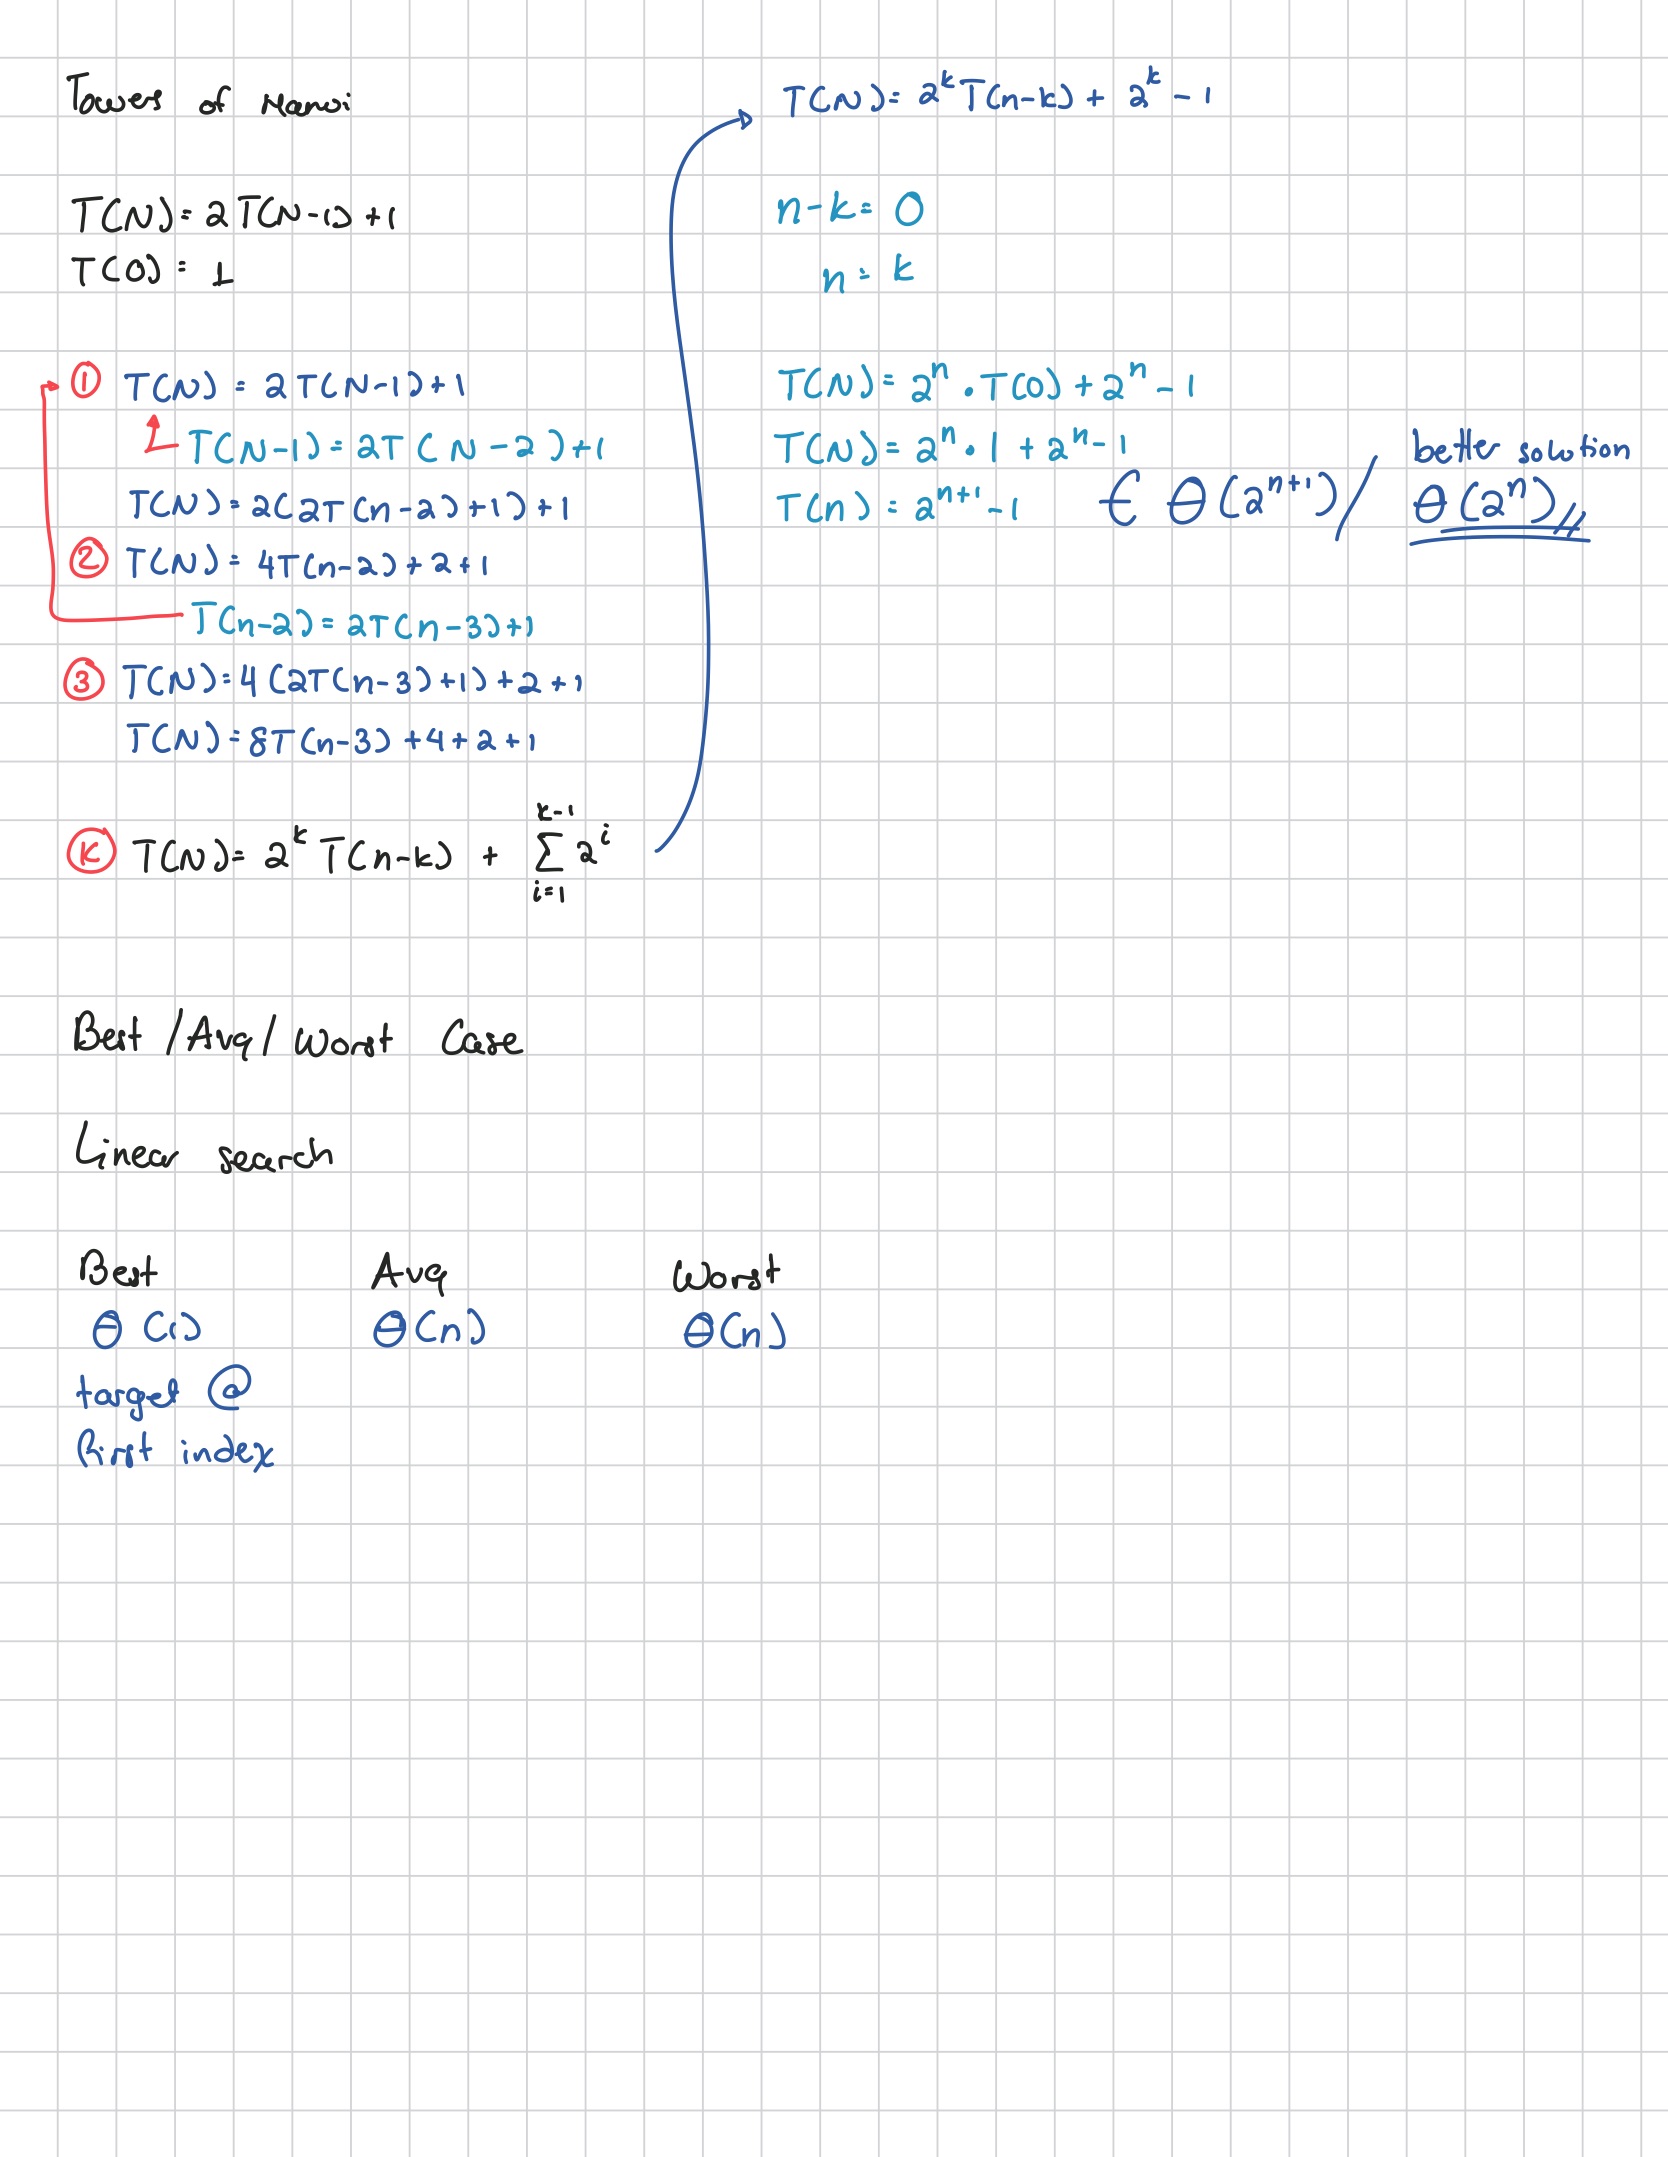 Towers of Hanoi
T(N) = 2T(N-1) + 1
T(0) = 1
① T(N) = 2T(N-1)+1
T(N-1) = 2T(N-2)+1
T(N) = 2(2T(n-2)+1)+1
② T(N) = 4T(n-2)+2+1
T(n-2) = 2T(n-3)+1
③ T(N) = 4(2T(n-3)+1)+2+1
T(N) = 8T(n-3)+4+2+1
Ⓚ T(N) = 2^k T(n-k) + ∑_{i=1}^{k-1} 2^i
T(N) = 2^k T(n-k) + 2^k - 1
n-k = 0
n = k
T(N) = 2^n · T(0) + 2^n - 1
T(N) = 2^n · 1 + 2^n - 1
T(n) = 2^{n+1} - 1 ∈ Θ(2^{n+1}) / better solution
Θ(2^n)
Best / Avg / Worst Case
Linear search
Best Avg Worst
Θ(1) Θ(n) Θ(n)
target @
first index